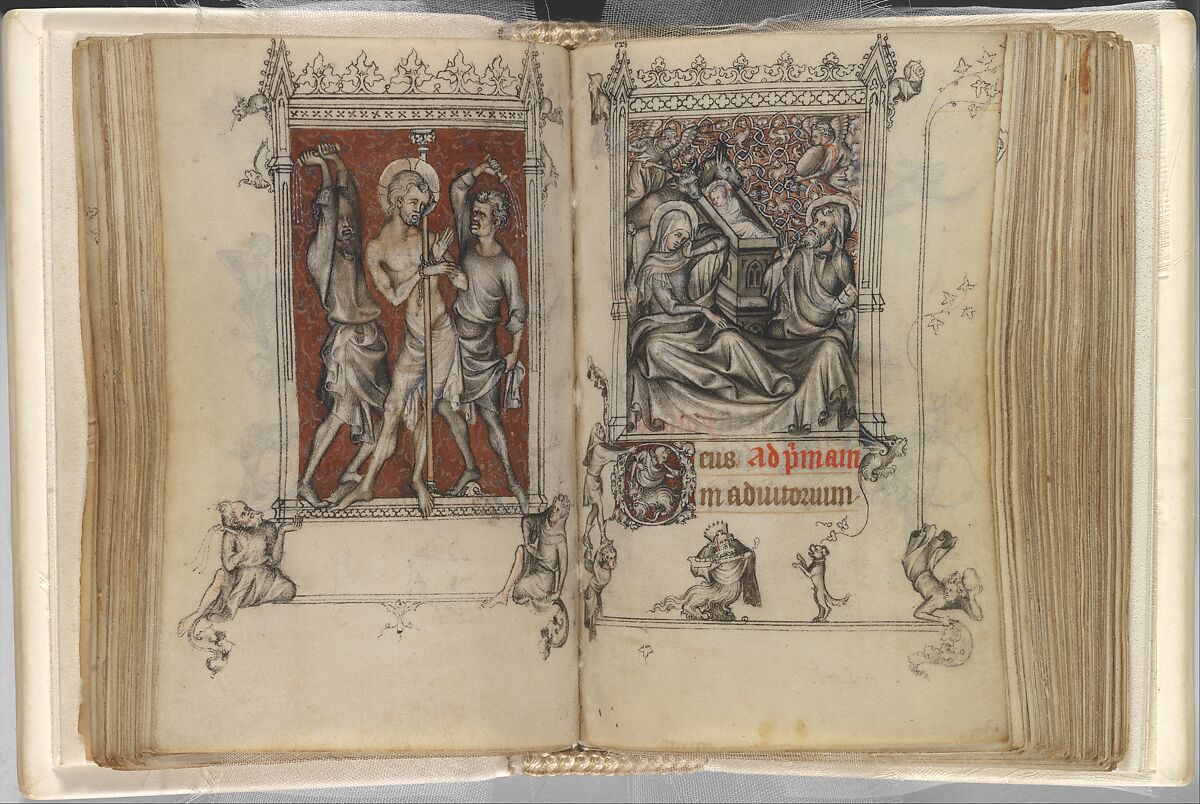 Deus Ad p̄mam
in adiutorium